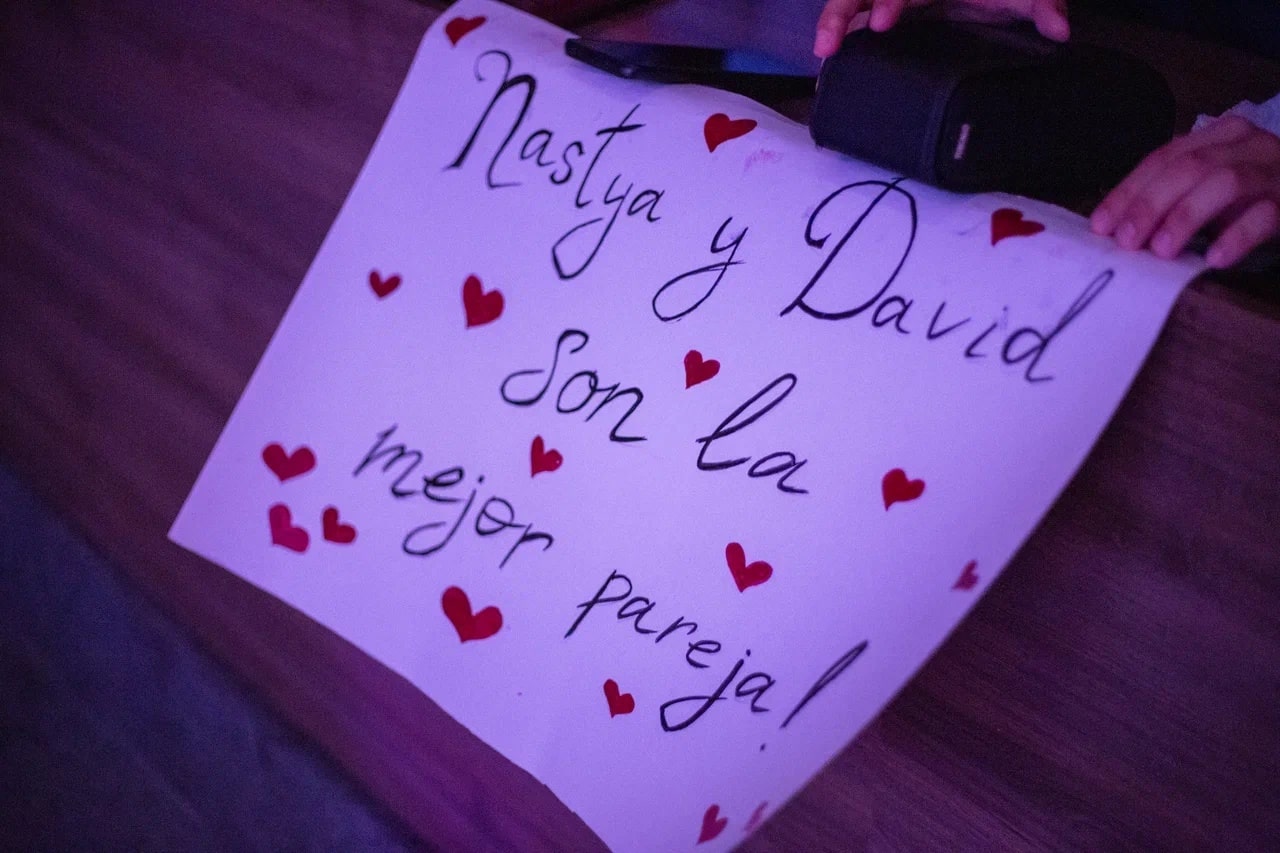 Nastya y David
son la
mejor pareja!